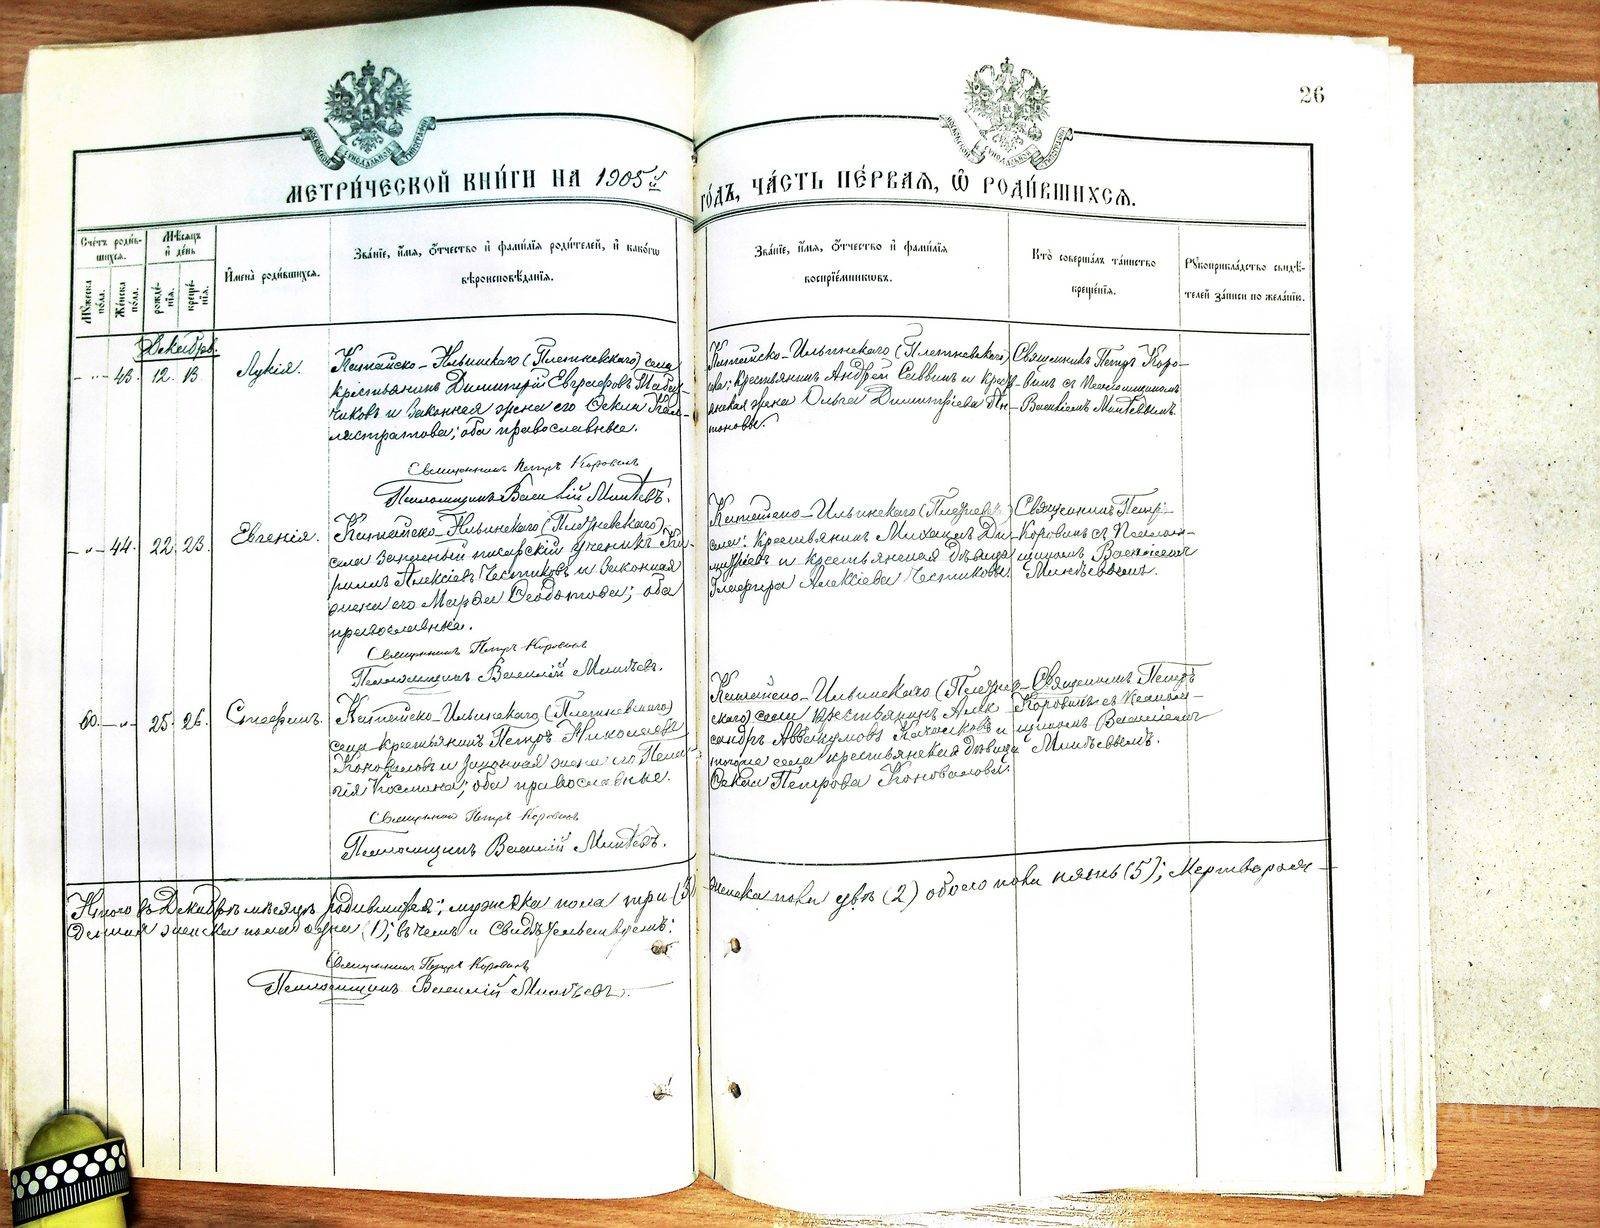 26
МОСКОВСКОЙ СѴНОДАЛЬНОЙ ТИПОГРАФІИ
МОСКОВСКОЙ СѴНОДАЛЬНОЙ ТИПОГРАФІИ
МЕТРИ́ЧЕСКОЙ КНИ́ГИ НА 1905й
ГО́ДЪ, ЧА́СТЬ ПЕ́РВАЯ, Ѽ РОДИ́ВШИХСЯ.
Сче́тъ роди́в-
шихся.
Мѣ́сяцъ
и҆ де́нь
Мꙋ́жеска по́ла.
Же́нска по́ла.
рожде́нїя.
креще́нїя.
И҆мена̀ роди́вшихся.
Зва́нїе, и҆́мя, ѻ҆́тчество и҆ фами́лїя роди́телей, и҆ како́гѡ
вѣроисповѣ́данїя.
Зва́нїе, и҆́мя, ѻ҆́тчество и҆ фами́лїя
воспрїе́мникѡвъ.
Кто̀ соверша́лъ та́инство
креще́нїя.
Рꙋкоприкла́дство свидѣ́-
телей за́писи по жела́нїю.
Декабрь.
- " - 43. 12. 13. Лукія.
Катайско-Ильинскаго (Плетневскаго) села
крестьянинъ Димитрій Евграфовъ Табат-
чиковъ и законная жена его Текла Кал-
листратова; оба православные.
Священникъ Петръ Коровинъ
Псаломщикъ Василій Минѣевъ.
Катайско-Ильинскаго (Плетневскаго)
села; крестьянинъ Андрей Саввинъ и кресть-
янская жена Ольга Димитріева Ан-
тоновы.
Священникъ Петръ Коро-
винъ съ Псаломщикомъ
Василіемъ Минѣевымъ.
- " - 44. 22. 23. Евгенія.
Катайско-Ильинскаго (Плетневскаго)
села Запасный писарскій ученикъ Ки-
риллъ Алексіевъ Чистиковъ и законная
жена его Марѳа Ѳеодотова; оба
православные.
Священникъ Петръ Коровинъ
Псаломщикъ Василій Минѣевъ.
Катайско-Ильинскаго (Плетнев)
села: Крестьянинъ Михаилъ Ди-
митріевъ и крестьянская дѣвица
Глафира Алексіева Чистиковы.
Священникъ Петръ
Коровинъ съ Псалом-
щикомъ Василіемъ
Минѣевымъ.
60. - " - 25. 26. Стефанъ.
Катайско-Ильинскаго (Плетневскаго)
села крестьянинъ Петръ Николаевъ
Коноваловъ и законная жена его Пела-
гія Космина; оба православные.
Священникъ Петръ Коровинъ
Псаломщикъ Василій Минѣевъ.
Катайско-Ильинскаго (Плетнев-
скаго) села крестьянинъ Алек-
сандръ Аввакумовъ и
того же села крестьянская дѣвица
Текла Петрова Коновалова.
Священникъ Петръ
Коровинъ съ псалом-
щикомъ Василіемъ
Минѣевымъ.
Итого въ Декабрѣ мѣсяцѣ родившихся; мужска пола три (3) женска пола двѣ (2) обоего пола пять (5); Мертворож-
денная женска пола одна (1); въ чемъ и Свидѣтельствуемъ:
Священникъ Петръ Коровинъ
Псаломщикъ Василій Минѣевъ.